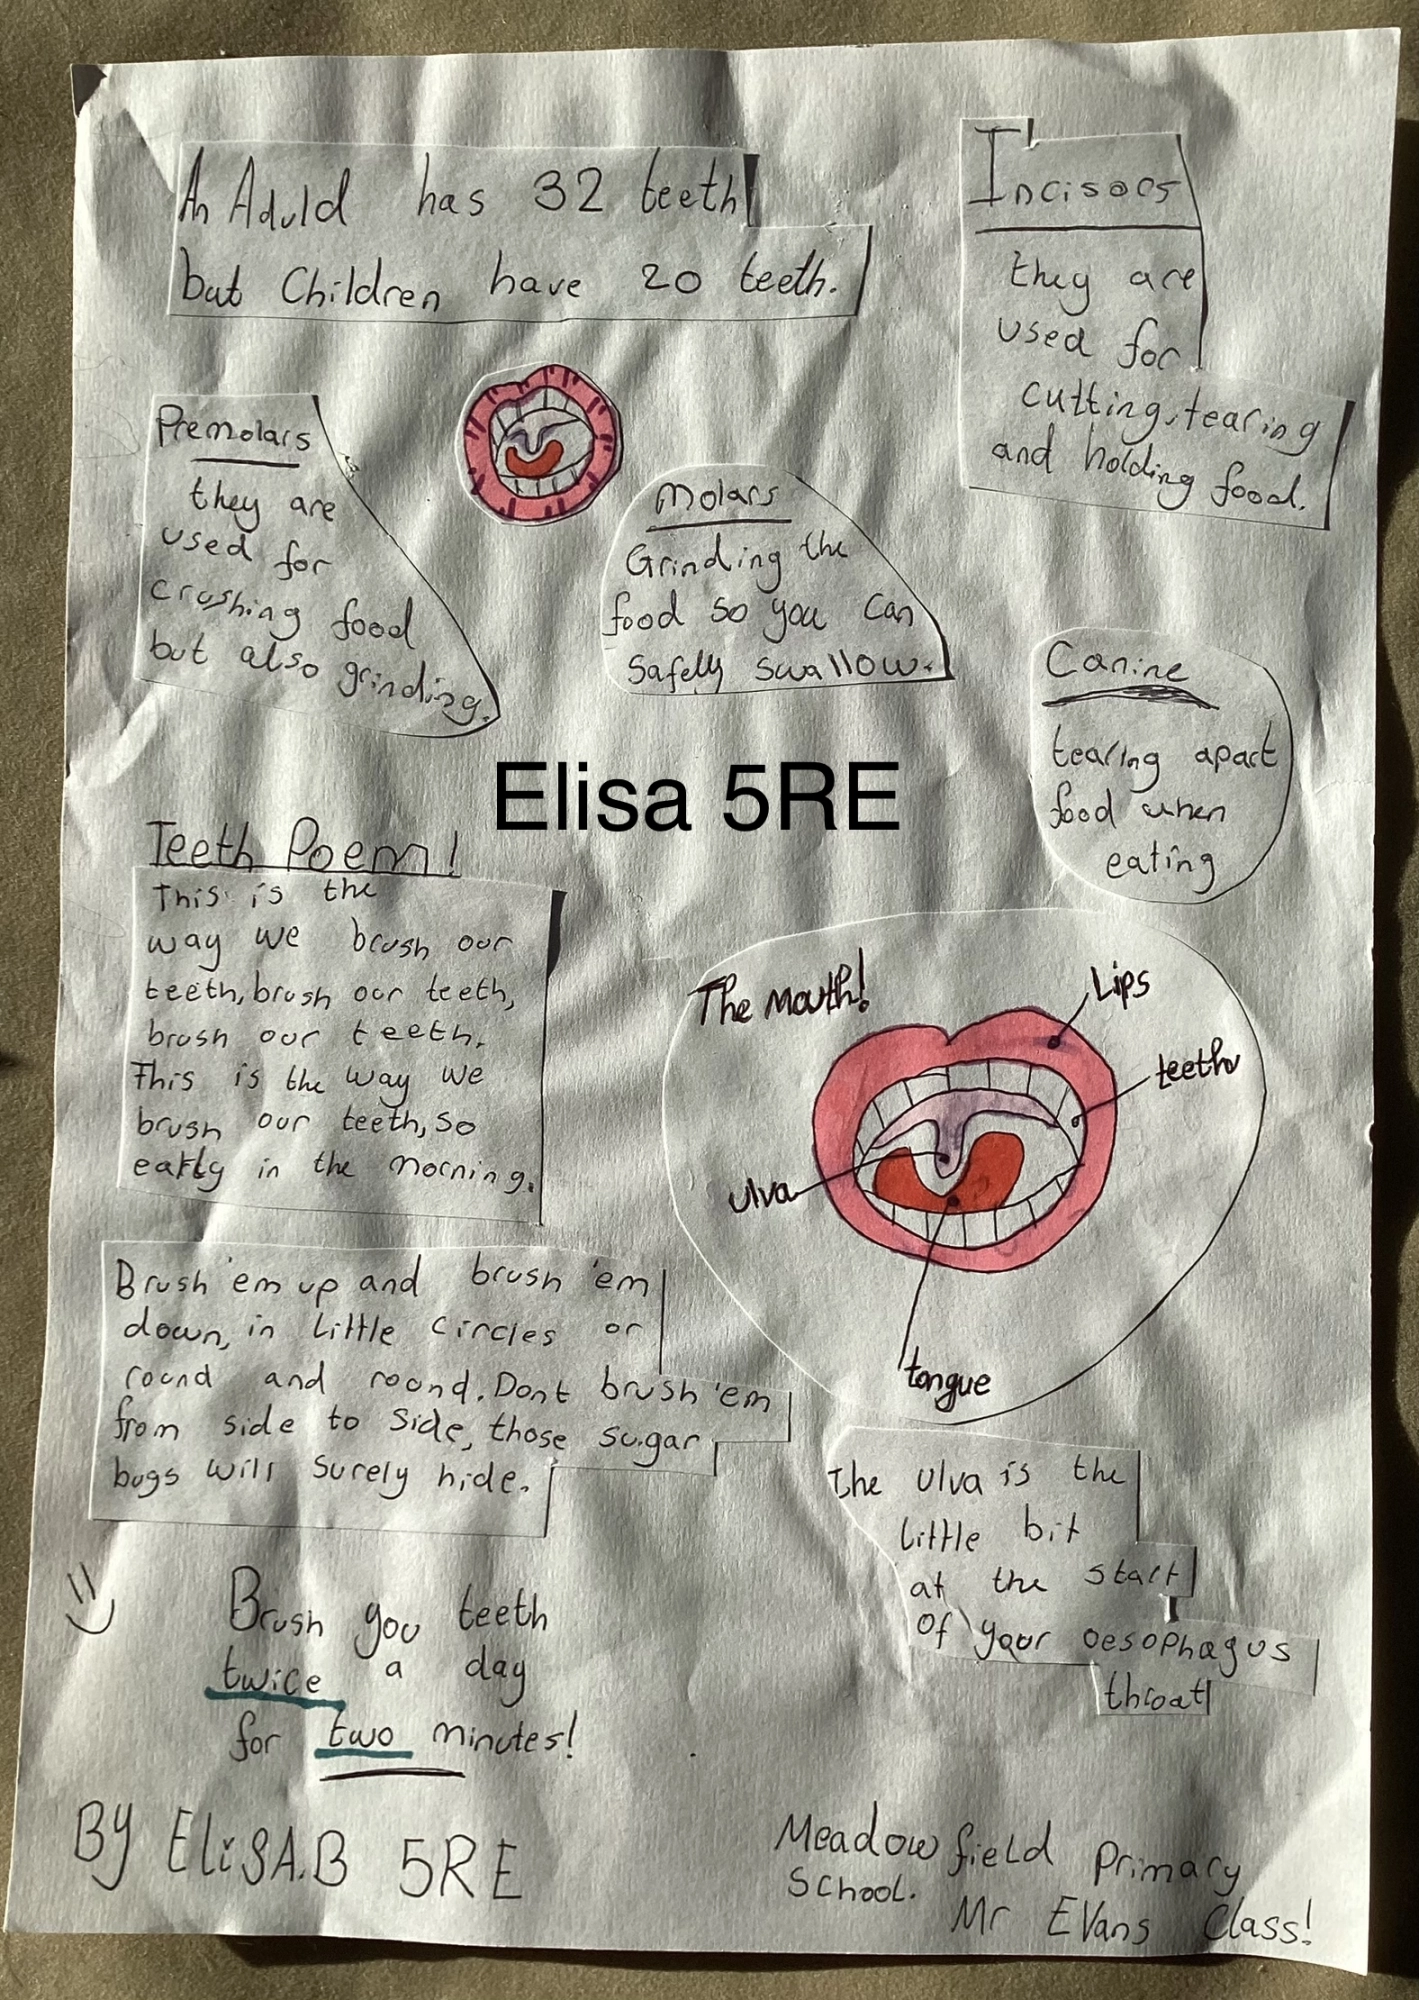 An Aduld has 32 teeth
but Children have 20 teeth.
Incisors
they are
used for
cutting, tearing
and holding food.
Premolars
they are
used for
crushing food
but also grinding.
Molars
Grinding the
food so you can
safely swallow.
Canine
tearing apart
food when
eating
Elisa 5RE
Teeth Poem!
This is the
way we brush our
teeth, brush our teeth,
brush our teeth.
This is the way we
brush our teeth, so
early in the morning.
The mouth!
Lips
teeth
ulva
tongue
Brush 'em up and brush 'em
down, in little circles or
round and round. Dont brush 'em
from side to side, those sugar
bugs will surely hide.
The ulva is the
little bit
at the start
of your oesophagus
throat
Brush you teeth
twice a day
for two minutes!
By ElisA.B 5RE
Meadow field Primary
School.
Mr Evans Class!